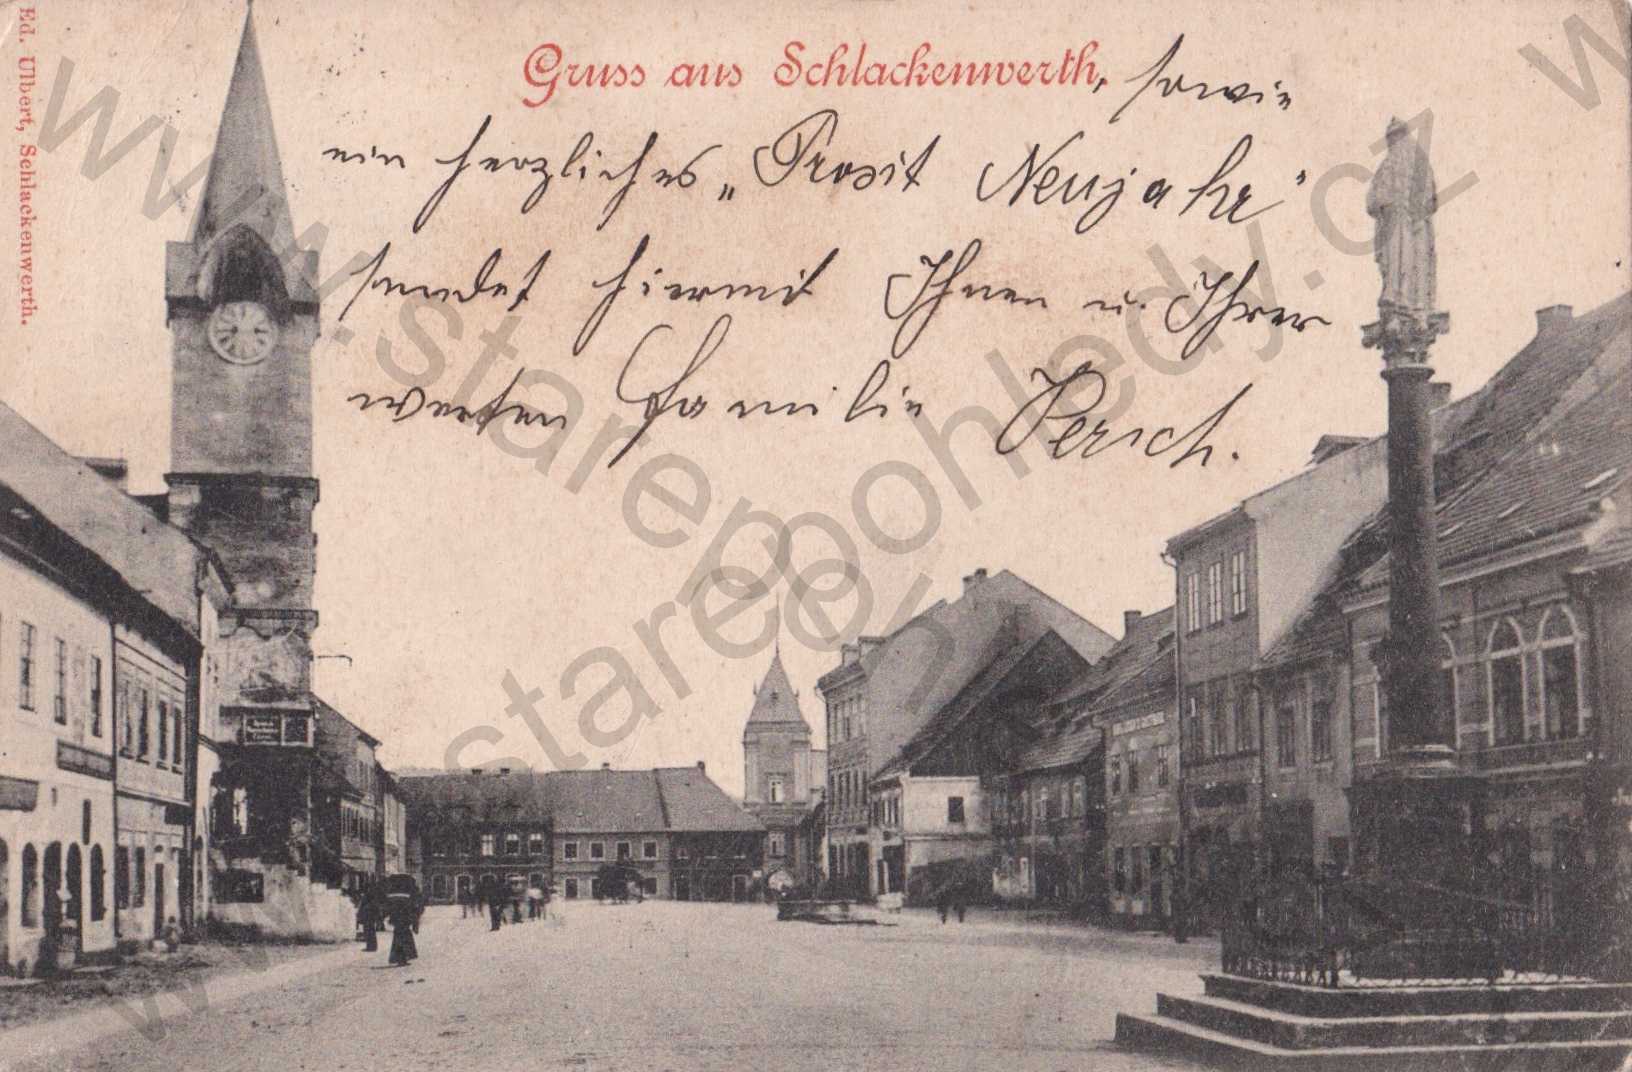 Gruss aus Schlackenwerth, sowie
ein herzliches „Prosit Neujahr"
sendet hiermit Ihnen u. Ihrer
werten Familie Persch.
Ed. Ulbert, Schlackenwerth.
www.starepohledy.cz
www.starepohledy.cz